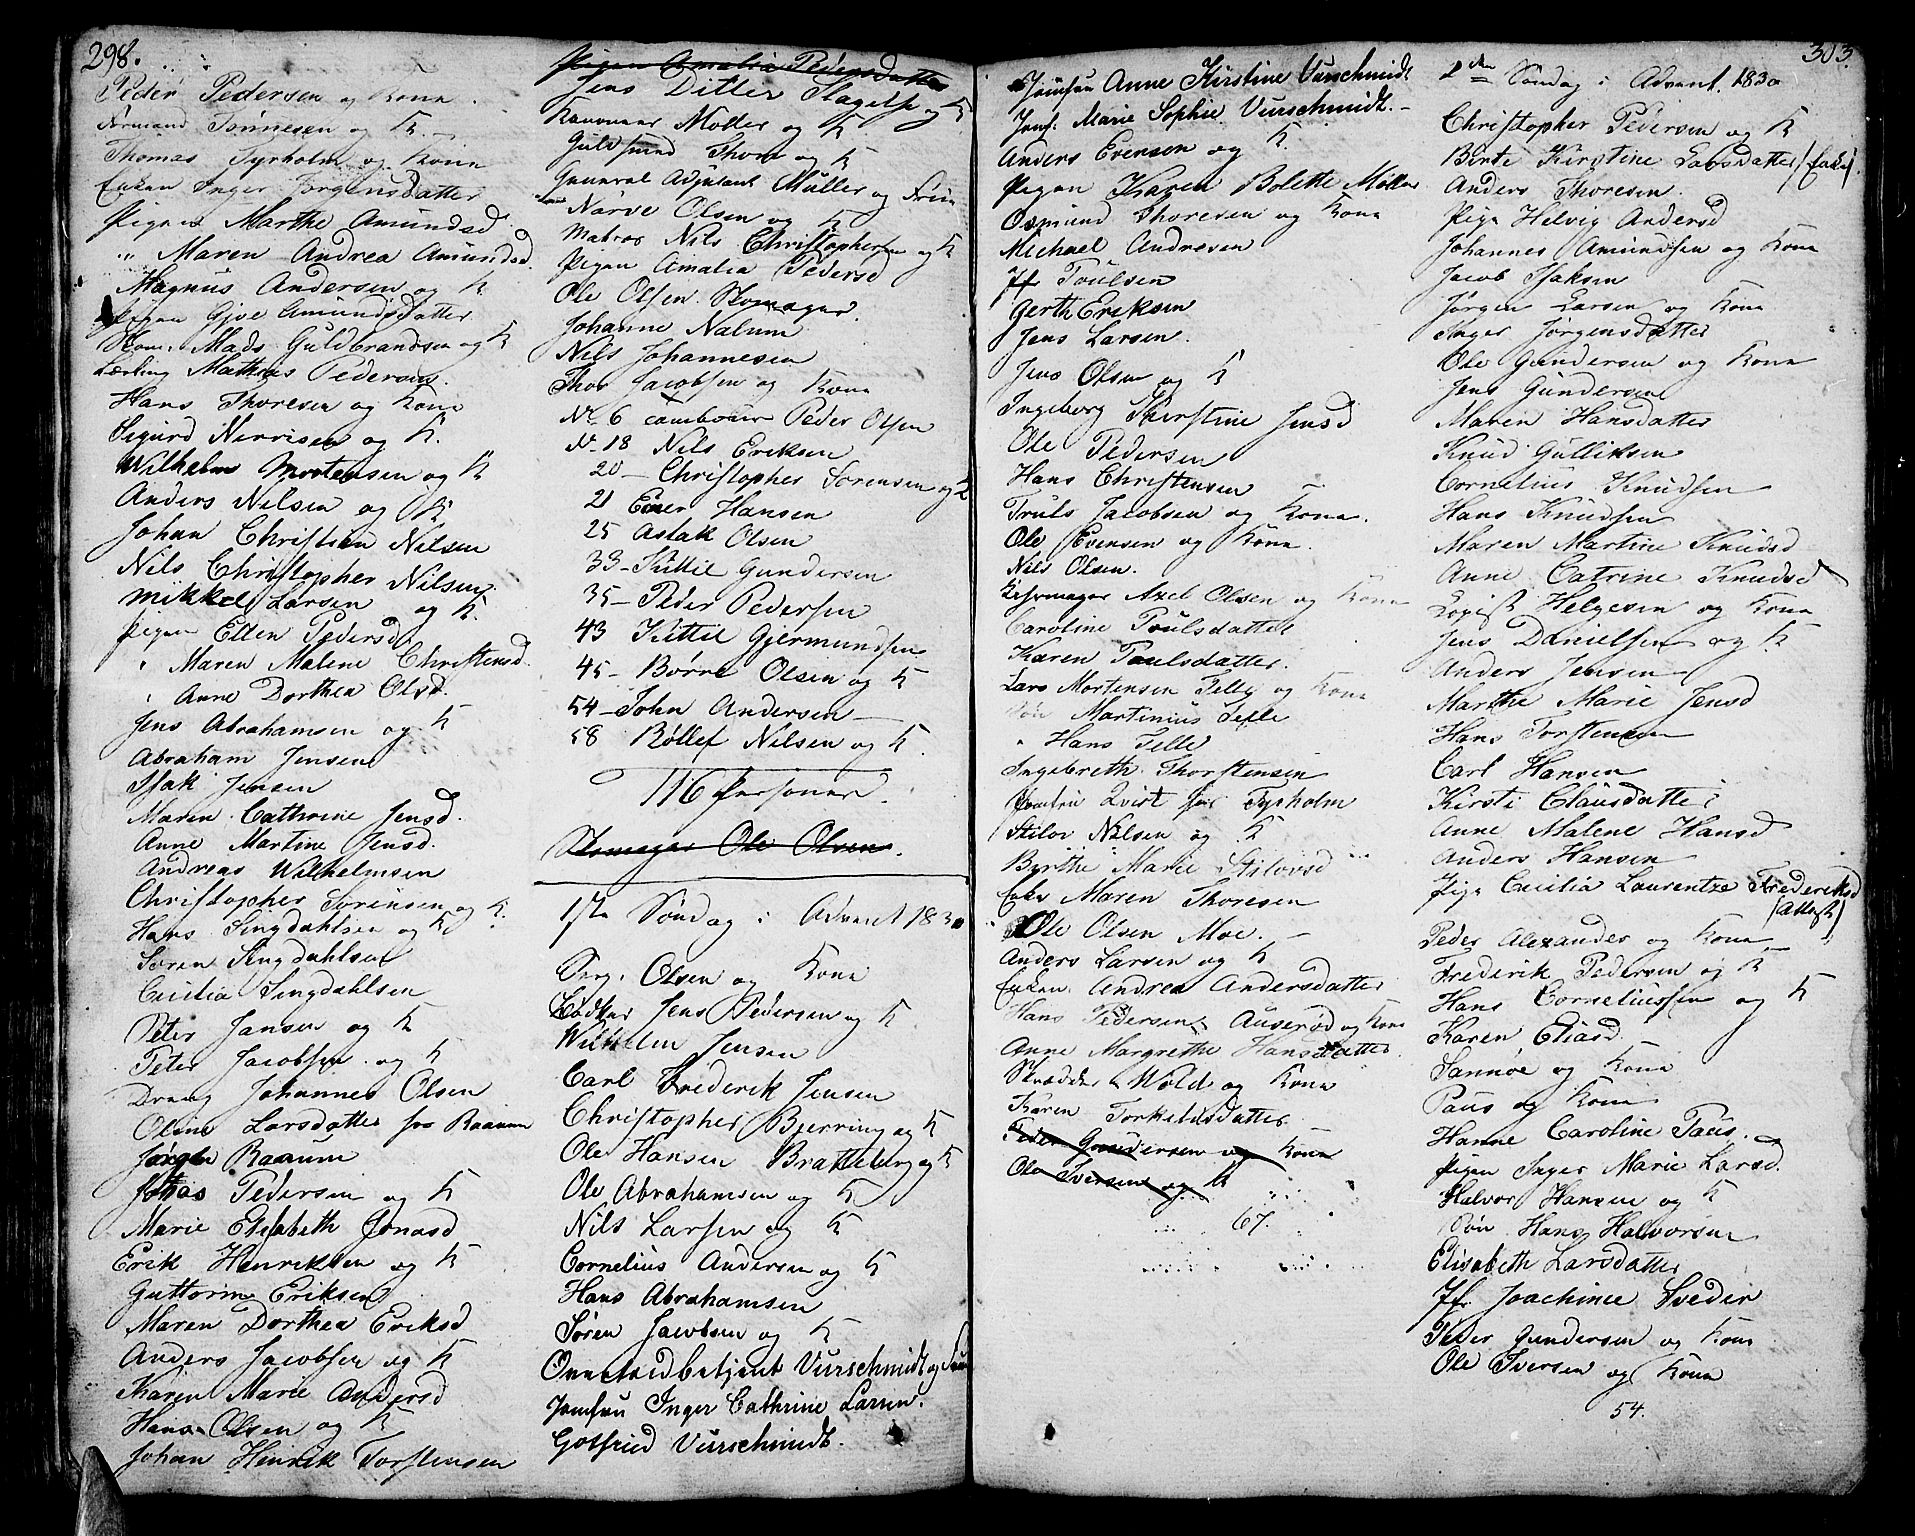 298.
Peder Pedersen og Kona
Tønnesen og K.
Thomas Tyrholm og Kona
Enken Inger Jørgensdatter
Pigen Marthe Amundsd
" Maren Andrea Amundsd.
Magnus Andersen og K
Pigen Gjoe Amundsdatter
Mads Guldbrandsen og K
Lærling Mathias Pedersen.
Hans Thoresen og Kone
Sigurd Nerrisen og K.
Wilhelm Mortensen og K
Anders Nilsen og K
Johan Christian Nilsen
Nils Christopher Nilsen
Mikkel Larsen og K.
Pigen Ellen Pedersd
" Maren Malene Christensd.
" Anne Dorthea Olsd.
Jens Abrahamsen og K
Abraham Jensen
Isak Jensen
Maren Cathrine Jensd.
Anne Martine Jensd.
Andreas Wilhelmsen
Christopher Sørensen og K.
Hans Singdahlsen og K
Søren Singdahlsen
Cecilia Singdahlsen
Peter Jansen og K
Peter Jacobsen og K
Dreng Johannes Olsen
Oline Larsdatter for Raanum
Jørgen Raanum
Jonas Pedersen og K
Marie Elisabeth Jonasd
Erik Henriksen og K
Guttorm Eriksen
Maren Dorthea Eriksd
Anders Jacobsen og K
Karen Marie Andersd
Hans Olsen og K
Johan Hinrik Torstensen
Pigen Amalia Pedersdatter
Jens Ditler Slagelse og K
Møller og K
Guldsmed Thor og K
General Adjutant Müller og Frue
Narve Olsen og K
Matros Nils Christophersen og K
Pigen Amalia Pedersd
Ole Olsen Skomager.
Johanne Nalum
Nils Johannesen
Thor Jacobsen og Kona
No 6 Tambour Peder Olsen
No 18 Nils Eriksen
20 - Christopher Sørensen og K
21 Ener Hansen
25 Aslak Olsen
33 - Kittil Gundersen
35 - Peder Pedersen
43 Kittil Gjermundsen
45 - Børre Olsen og K
54 - John Andersen -
58 Rollef Nilsen og K.
116 Personer.
Skomager Ole Olsen.
1ste Søndag i Advent 1830
Serg. Olsen og Kona
Bødker Jens Pedersen og K
Wilhelm Jensen
Carl Frederik Jensen
Christopher Bjerring og K
Ole Hansen Bratteberg og K
Ole Abrahamsen og K
Nils Larsen og K
Cornelius Andersen og K
Hans Abrahamsen
Søren Jacobsen og K
Overtoldbetjent Vurschmidt og Frue
Jomfru Inger Cathrine Larsen.
Gotfried Vurschmidt.
303.
Jomfru Anne Kirstine Vurschmidt
Jomf. Marie Sophie Vurschmidt. -
Anders Evensen og K.
Pigen Karen Bolette Møller
Osmund Thoresen og Kona
Michael Andresen
Jfr Poulsen
Gerth Eriksen
Jens Larsen.
Jens Olsen og K
Ingeborg Kirstine Jensd
Ole Pedersen
Hans Christensen
Truls Jacobsen og Kona.
Ole Evensen og Kona.
Nils Olsen.
Axel Olsen og Kona
Caroline Poulsdatter
Karen Poulsdatter.
Lars Mortensen Telle og Kona
Søn Martinius Telle
" Hans Telle
Ingebreth Thorstensen
Jomfru Qvist for Tyrholm
Stilov Nilsen og K
Byrthe Marie Stilovsd
Enke Maren Thoresen
Ole Olsen Moe. -
Anders Larsen og K
Enken Andrea Andersdatter
Hans Pedersen Auserød og Kona
Anne Margrethe Hansdatter
Skrædder Wold og Kona
Karen Torkildsdatter
Peder Gundersen og Kona
Ole Iversen og K
67.
2den Søndag i Advent 1830
Christopher Pedersen og K
Birte Kirstine Larsdatter (Enke)
Anders Thoresen.
Pige Helvig Andersd
Johannes Amundsen og Kona
Jacob Isaksen
Jørgen Larsen og Kona
Inger Jørgensdatter
Ole Gundersen og Kona
Jens Gundersen
Maren Hansdatter
Knud Gulliksen
Cornelius Knudsen
Hans Knudsen
Maren Martine Knudsd
Anne Catrine Knudsd
Helgesen og Kona
Jens Danielsen og K
Anders Jensen
Marthe Marie Jensd
Hans Torstensen
Carl Hansen
Kirsti Clausdatter
Anne Malene Hansd
Anders Hansen
Pige Cecilia Laurentze Frederiksd
(Attest)
Peder Alexander og Kona
Frederik Pedersen og K
Hans Corneliussen og K
Karen Eliasd
Sannøe og Kona
Paus og Kona
Hanne Caroline Paus.
Pigen Inger Marie Larsd.
Halvor Hansen og K
Søn Hans Halvorsen
Elisabeth Larsdatter
Jfr. Joachinee Sveder
Peder Gundersen og Kona
Ole Iversen og Kona
54.